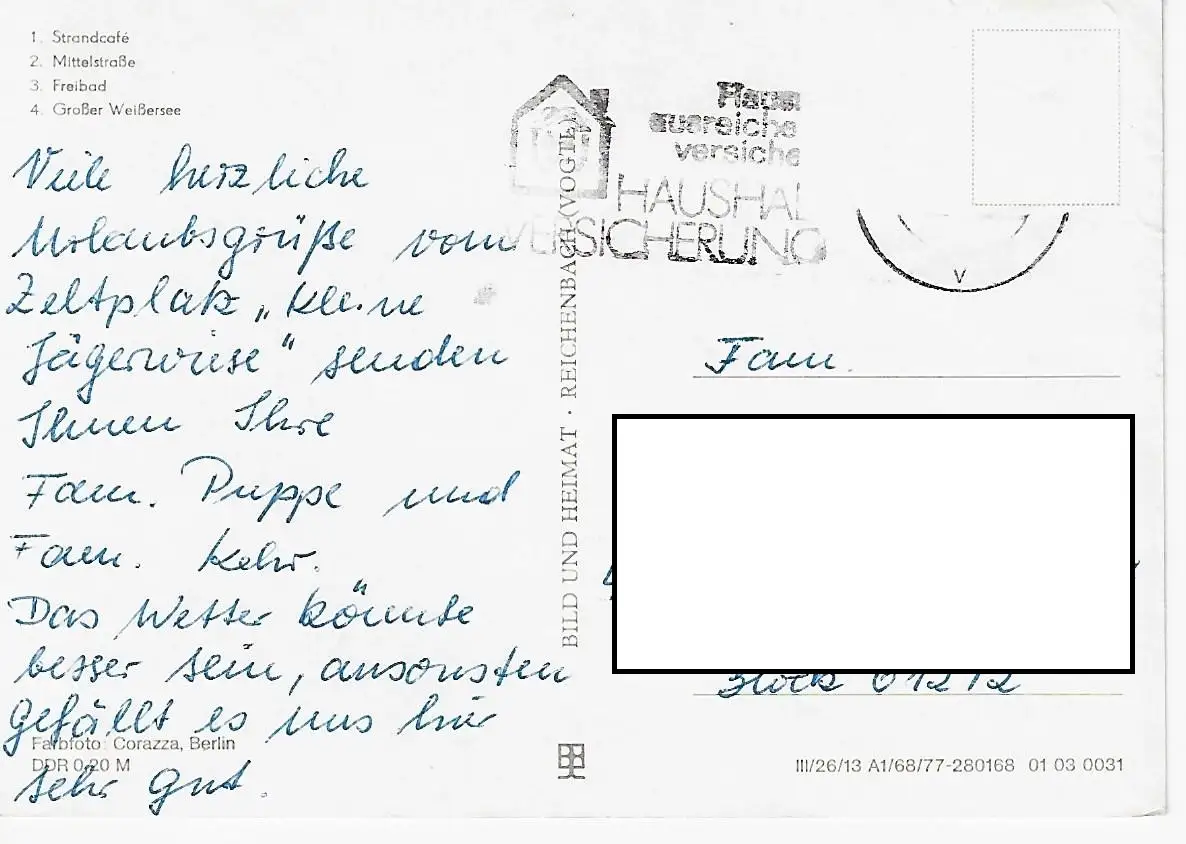 1. Strandcafé
2. Mittelstraße
3. Freibad
4. Großer Weißersee
Viele herzliche
Urlaubsgrüße vom
Zeltplatz „Kleine
Jägerwiese" senden
Ihnen Ihre
Fam. Puppe und
Fam. Kehr.
Das Wetter könnte
besser sein, ansonsten
gefällt es uns hier
sehr gut.
Farbfoto: Corazza, Berlin
DDR 0,20 M
BILD UND HEIMAT · REICHENBACH (VOGTL)
Haus
ausreiche
versiche
HAUSHAL
VERSICHERUNG
V
Fam.
Block 01212
III/26/13 A1/68/77-280168 01 03 0031